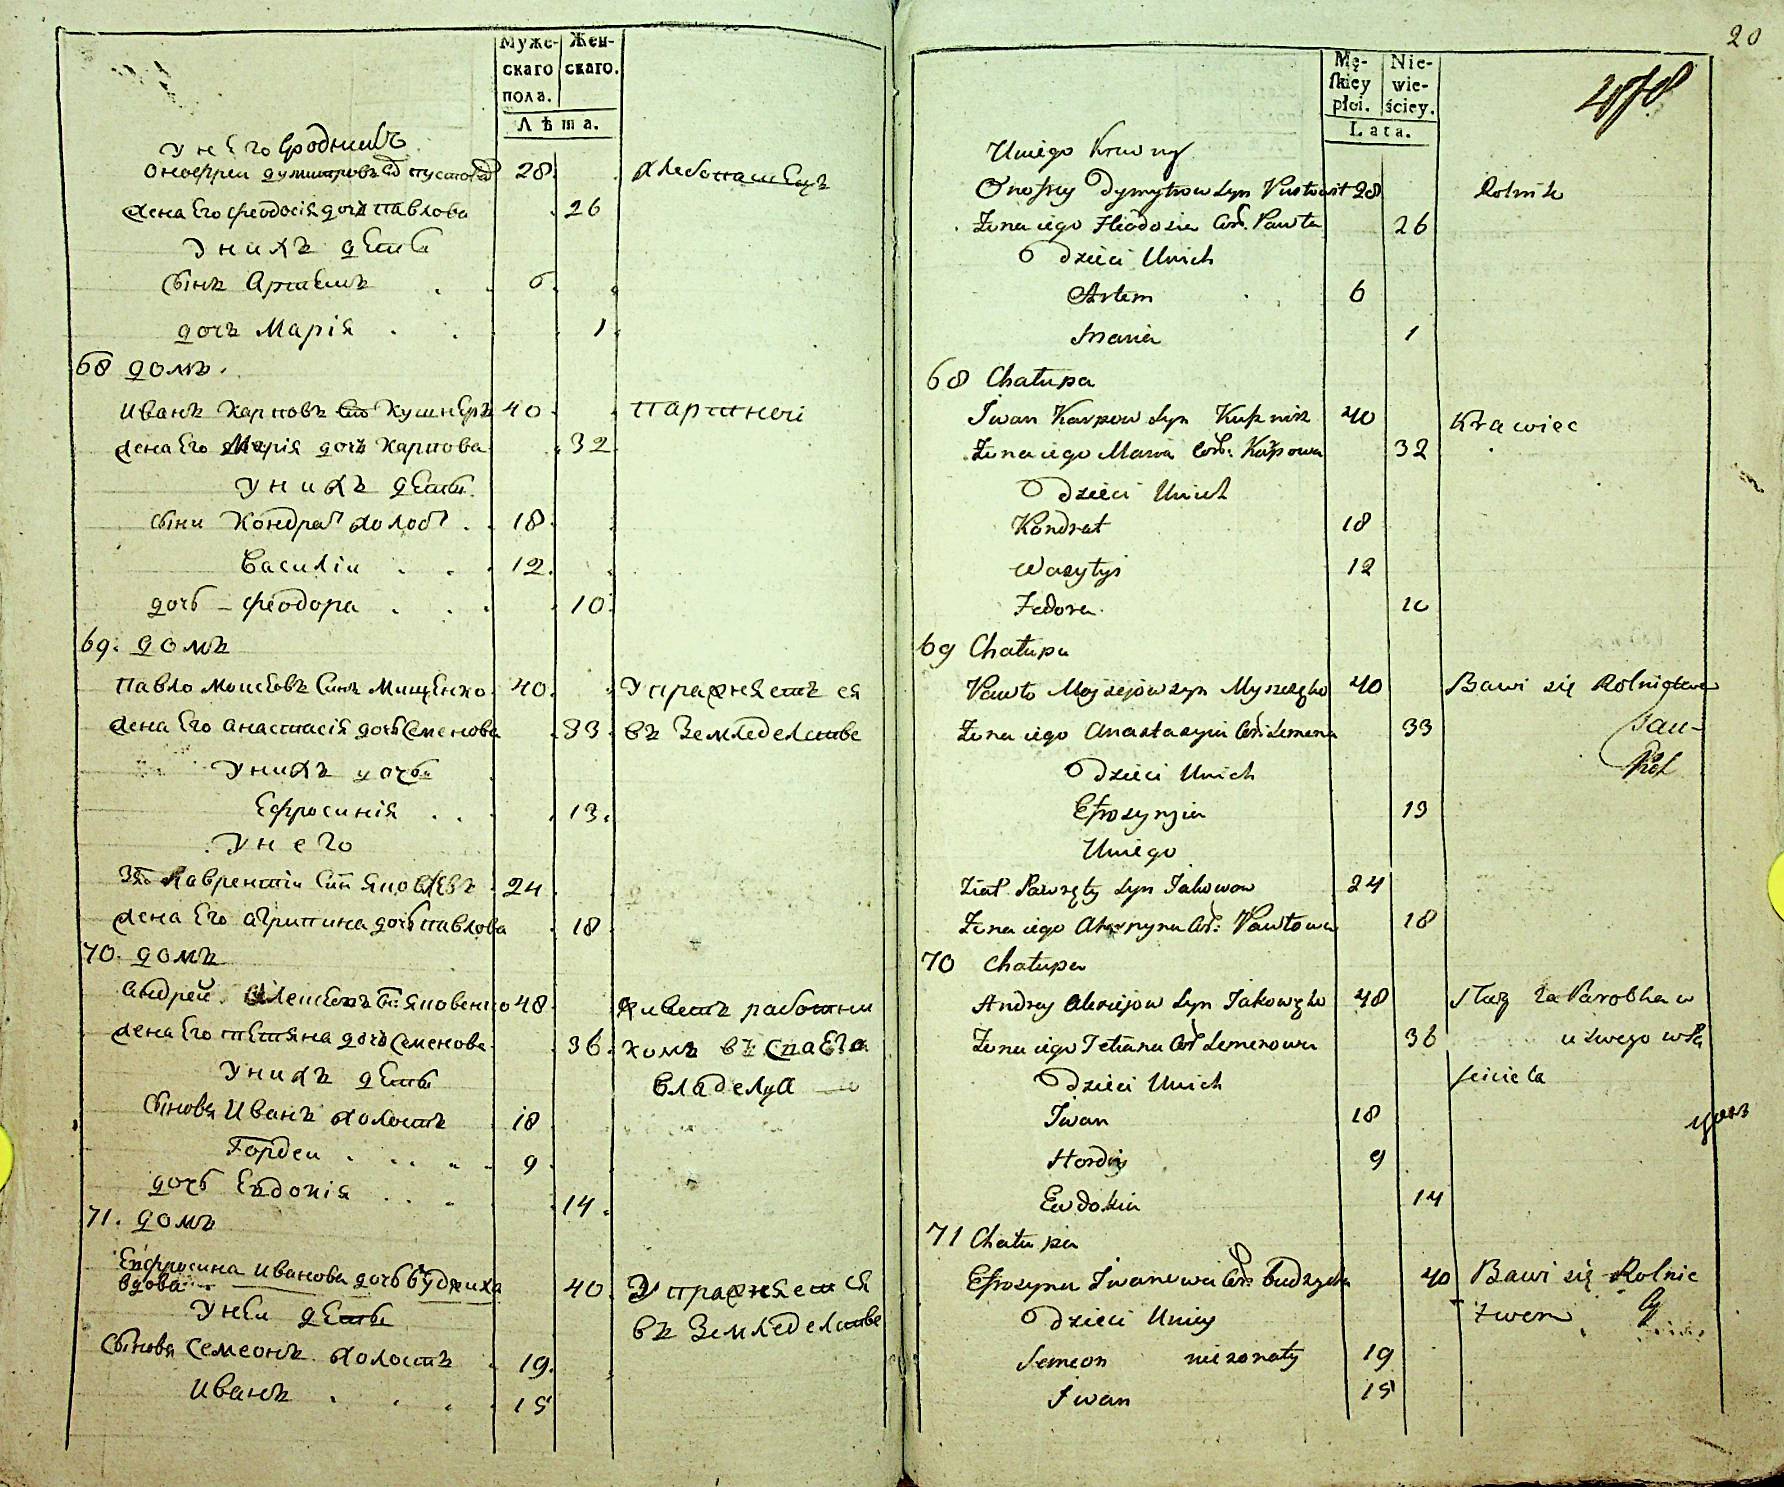 Муже-
скаго
пола.
Жен-
скаго.
Лѣта.
У него Сродникъ
Онофреи думитровъ пустовит 28. хлебопашецъ
жена Его феодосія дочь павлова 26
У нихъ дети
Сынъ Артемъ 6.
дочь Марія 1.
68 домъ.
Иванъ Карповъ Сынъ Кушнеръ 40 портной
жена Его Марія дочь Карпова 32
У нихъ дети.
Сыни Кондрат холост 18.
Василіи 12.
дочь феодора 10.
69. домъ
Павло Моисеевъ Синъ Мищенко 40. Упражняетъ ся
жена Его анастасія дочь Семенова 33. въ Земледелстве
У нихъ дочь
Ефросинія 13.
У него
Лаврентіи Син яковлевъ 24
жена Его агрипина дочь павлова 18
70. домъ
андрей яковенко 48. живетъ работни
жена Его тетяна дочь Семенова 36. комъ въ своего
У нихъ дети владелца
Сыновя Иванъ холостъ 18
Гордеи 9.
дочь Евдокія 14.
71. домъ
Ефросина Иванова дочь буджиха
вдова 40. Упражняется
У неи дети въ Земледелстве
Сыновя Семеонъ холостъ 19.
Иванъ 15
20
Mę-
ſkiey
płci.
Nie-
wie-
ściey.
Lata.
Uniego Krewny
Onofrey Dymytrow Syn Pustowit 28 Rolnik
Żona iego Fteodosia Cor. Pawła 26
Dzieci Unich
Artem 6
Maria 1
68 Chałupa
Iwan Karpow Syn Kusznir 40 Krawiec
Żona iego Maria Cor. Karpowa 32
Dzieci Unich
Kondrat 18
Wasylyi 12
Fedora 10
69 Chałupa
Pawło Moyzejow syn Myszczęko 40 Bawi się Rolnictwem
Żona iego Anastasyia Cor. Semena 33
Dzieci Unich
Efrosynyia 13
Uniego
Ziat Syn Jakowow 24
Żona iego Cor: Pawłowa 18
70 Chałupa
Andrey Alexiejow Syn Jakowęko 48 Służ za Parobka w
Żona iego Tetiana Cor Semenowa 36 u Swego wła
Dzieci Unich sciciela
Iwan 18
Hordiy 9
Ewdokia 14
71 Chałupa
Efrosyna Iwanowa Cor. Budzycha 40 Bawi się Rolnic
Dzieci Uniey twem
Semeon nieżonaty 19
Iwan 15